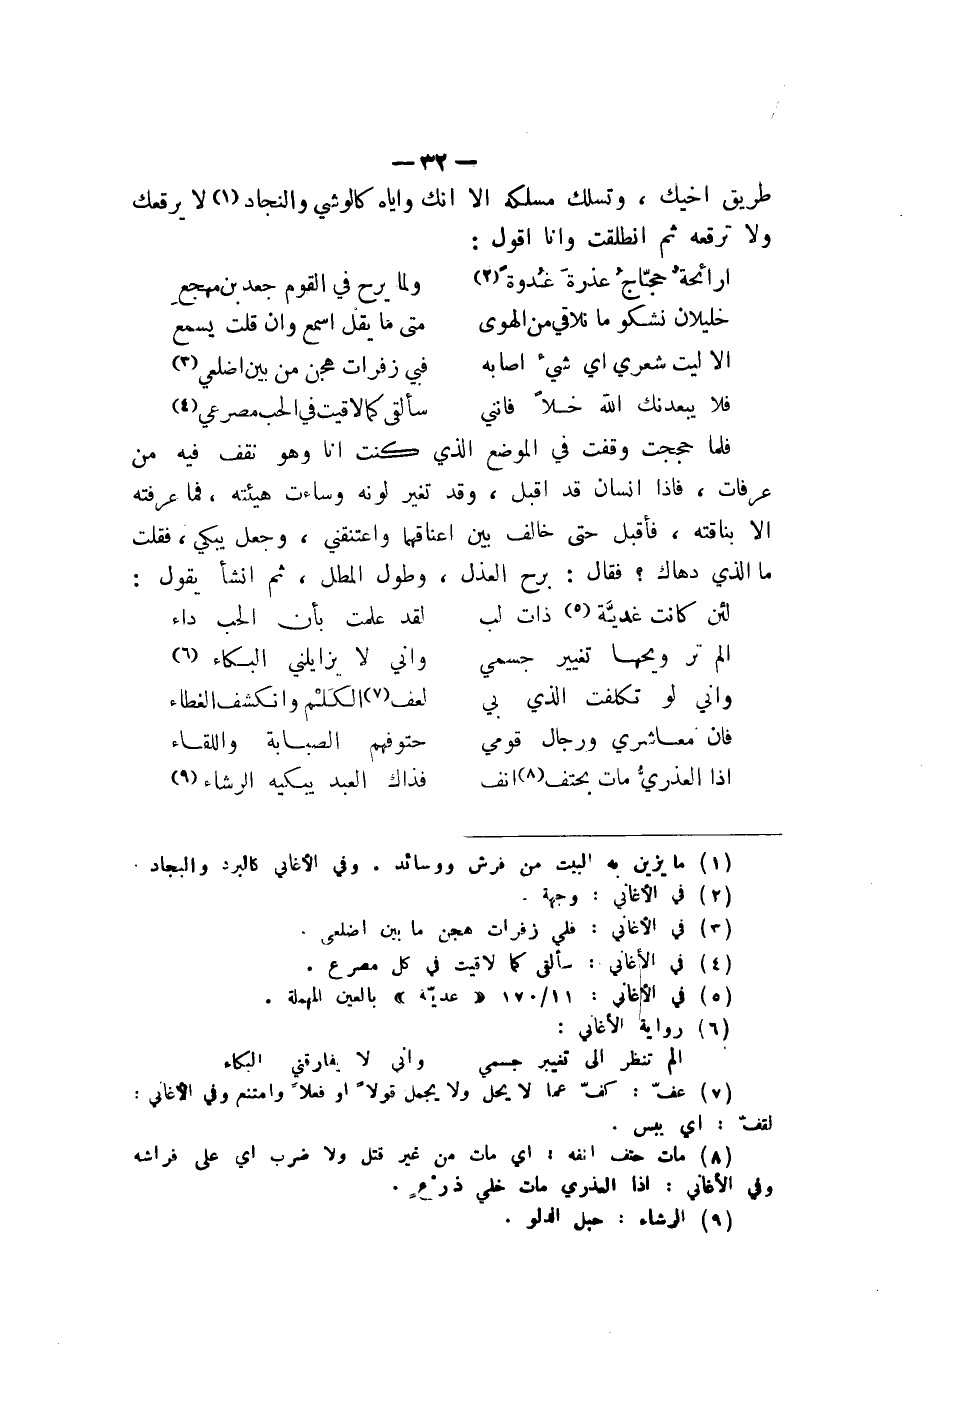 — ٣٢ —
طريق اخيك ، وتسلك مسلكه الا انك واياه كالوشي والنجاد (١) لا يرقعك
ولا ترقعه ثم انطلقت وانا اقول :
ارائحةٌ حجّاجُ عذرةَ غُدوةً (٢) ولما يرح في القوم جعد بن مهجعِ
خليلان نشكو ما نلاقي من الهوى متى ما يقل اسمع وان قلت يسمع
الا ليت شعري اي شيءٍ اصابه فبي زفرات هجن من بين اضلعي (٣)
فلا يبعدنك الله خلاً فانني سألقى كما لاقيت في الحب مصرعي (٤)
فلما حججت وقفت في الموضع الذي كنت انا وهو نقف فيه من
عرفات ، فاذا انسان قد اقبل ، وقد تغير لونه وساءت هيئته ، فما عرفته
الا بناقته ، فأقبل حتى خالف بين اعناقهما واعتنقني ، وجعل يبكي ، فقلت
ما الذي دهاك ؟ فقال : برح العذل ، وطول المطل ، ثم انشأ يقول :
لئن كانت غديَّة (٥) ذات لب لقد علمت بأن الحب داء
الم تر ويحها تغيير جسمي واني لا يزايلني البكاء (٦)
واني لو تكلفت الذي بي لعف (٧) الكَلْم وانكشف الغطاء
فان معاشري ورجال قومي حتوفهم الصبابة واللقاء
اذا العذريُّ مات بحتف (٨) انف فذاك العبد يبكيه الرشاء (٩)
(١) ما يزين به البيت من فرش ووسائد . وفي الأغاني كالبرد والبجاد .
(٢) في الأغاني : وجهة .
(٣) في الأغاني : فلي زفرات هجن ما بين اضلعي .
(٤) في الأغاني : سألقى كما لاقيت في كل مصرع .
(٥) في الأغاني : ١٧٠/١١ « عديّة » بالعين المهملة .
(٦) رواية الأغاني :
الم تنظر الى تغيير جسمي واني لا يفارقني البكاء
(٧) عفّ : كفّ عما لا يحل ولا يجمل قولاً او فعلاً وامتنع وفي الأغاني :
لقفّ : اي يبس .
(٨) مات حتف انفه : اي مات من غير قتل ولا ضرب اي على فراشه
وفي الأغاني : اذا العذري مات خلي ذرعٍ .
(٩) الرشاء : حبل الدلو .